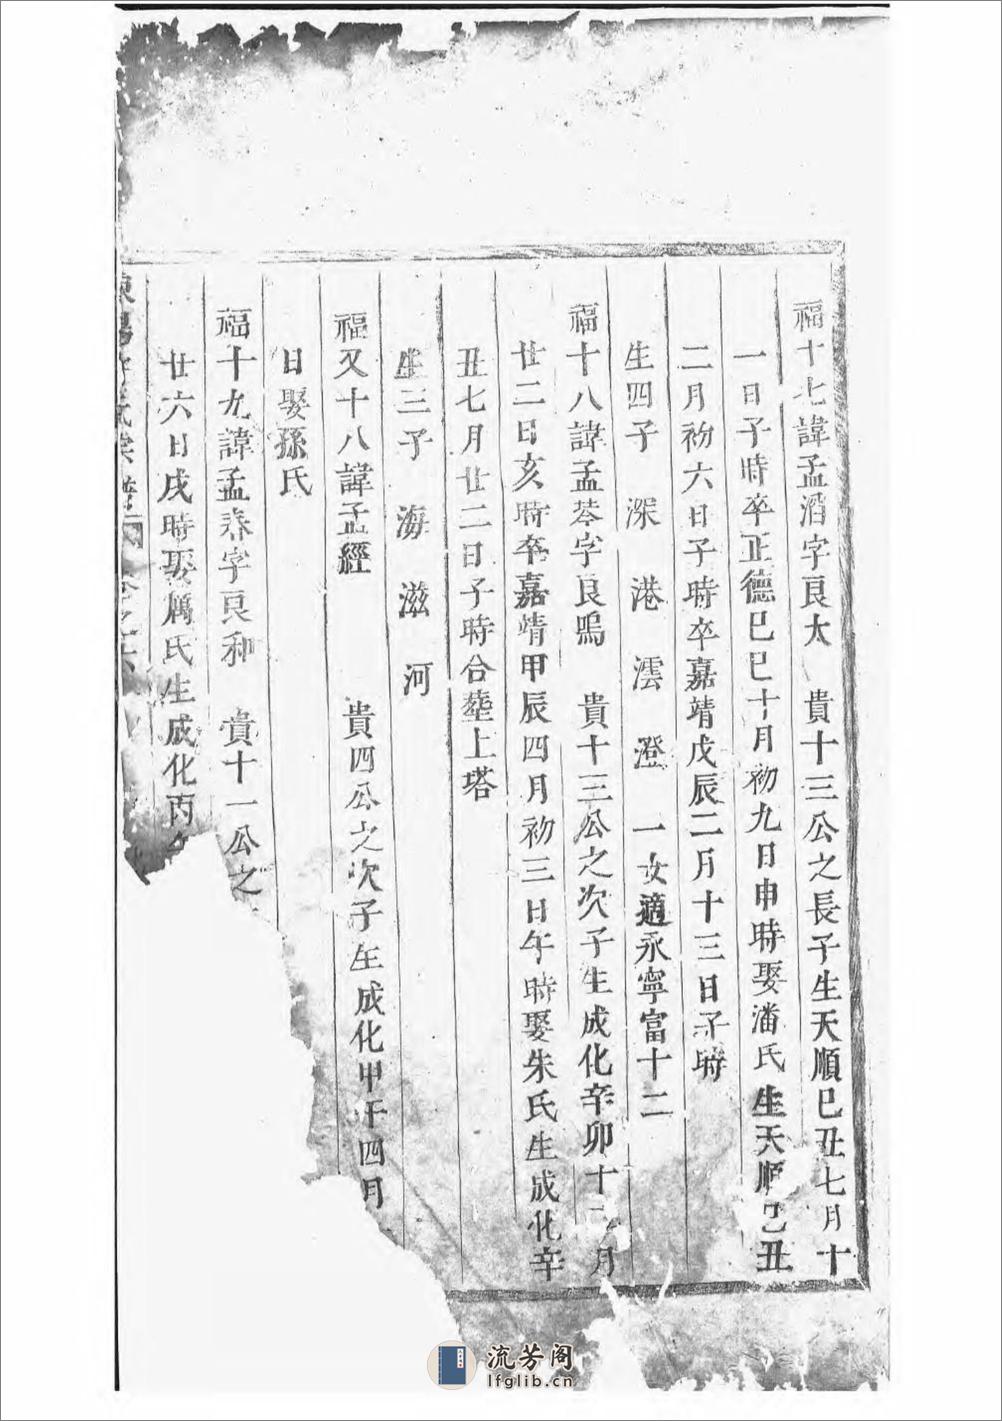 福十七諱孟滔字良太 貴十三公之長子生天順己丑七月十
一日子時卒正德己巳十月初九日申時娶潘氏生天順己丑
二月初六日子時卒嘉靖戊辰二月十三日子時
生四子 深 港 澐 澄 一女適永寧富十二
福十八諱孟 字良鳴 貴十三公之次子生成化辛卯十 月
廿二日亥時卒嘉靖甲辰四月初三日午時娶朱氏生成化辛
丑七月廿二日子時合塟上塔
生三子 海 滋 河
福又十八諱孟經 貴四公之次子生成化甲午四月
日娶孫氏
福十九諱孟泰字良和 貴十一公之
廿六日戌時娶厲氏生成化丙
流芳阁
lfglib.cn